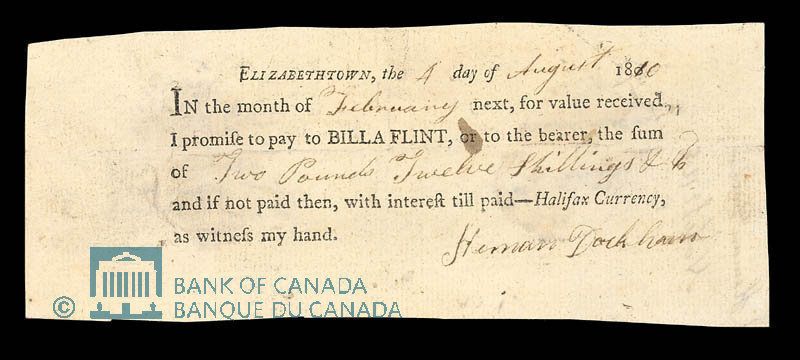 ELIZABETHTOWN, the 4 day of August 1810
IN the month of February next, for value received,
I promiſe to pay to BILLA FLINT, or to the bearer, the ſum
of Two Pounds Twelve Shillings &
and if not paid then, with intereſt till paid—Halifax Currency,
as witneſs my hand. Heman Dockham
© BANK OF CANADA
BANQUE DU CANADA